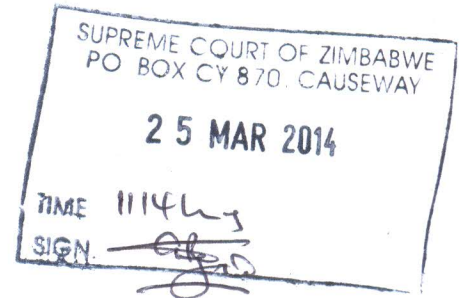 SUPREME COURT OF ZIMBABWE
PO BOX CY 870, CAUSEWAY
25 MAR 2014
TIME 1114hrs
SIGN